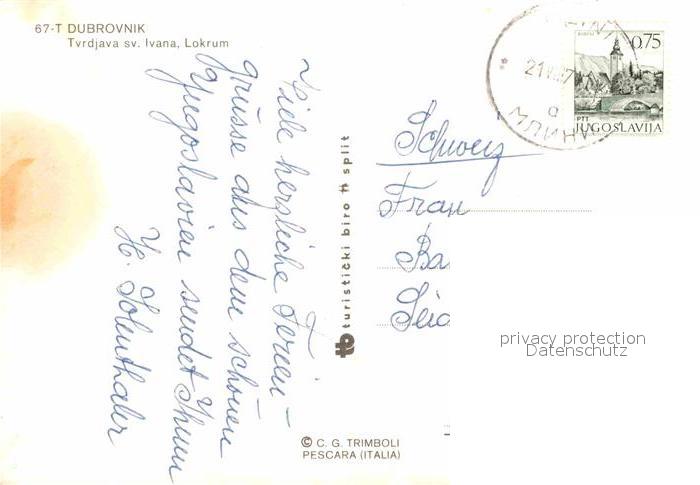 67-T DUBROVNIK
Tvrdjava sv. Ivana, Lokrum
Viele herzliche Ferien-
grüsse aus dem schönen
Yugoslavien sendet Ihnen
H. Solenthaler
turistički biro split
tb
© C. G. TRIMBOLI
PESCARA (ITALIA)
МЛИНИ
0,75
PTT
JUGOSLAVIJA
Schweiz
Frau
Ba
privacy protection
Datenschutz